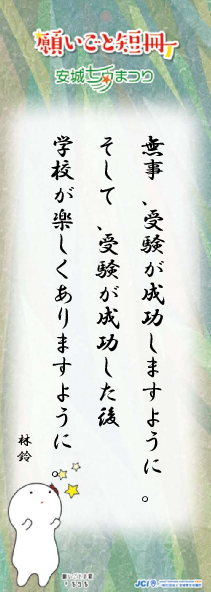 願いごと短冊
安城七夕まつり
無事、受験が成功しますように。
そして、受験が成功した後
学校が楽しくありますように。
林鈴
JCI